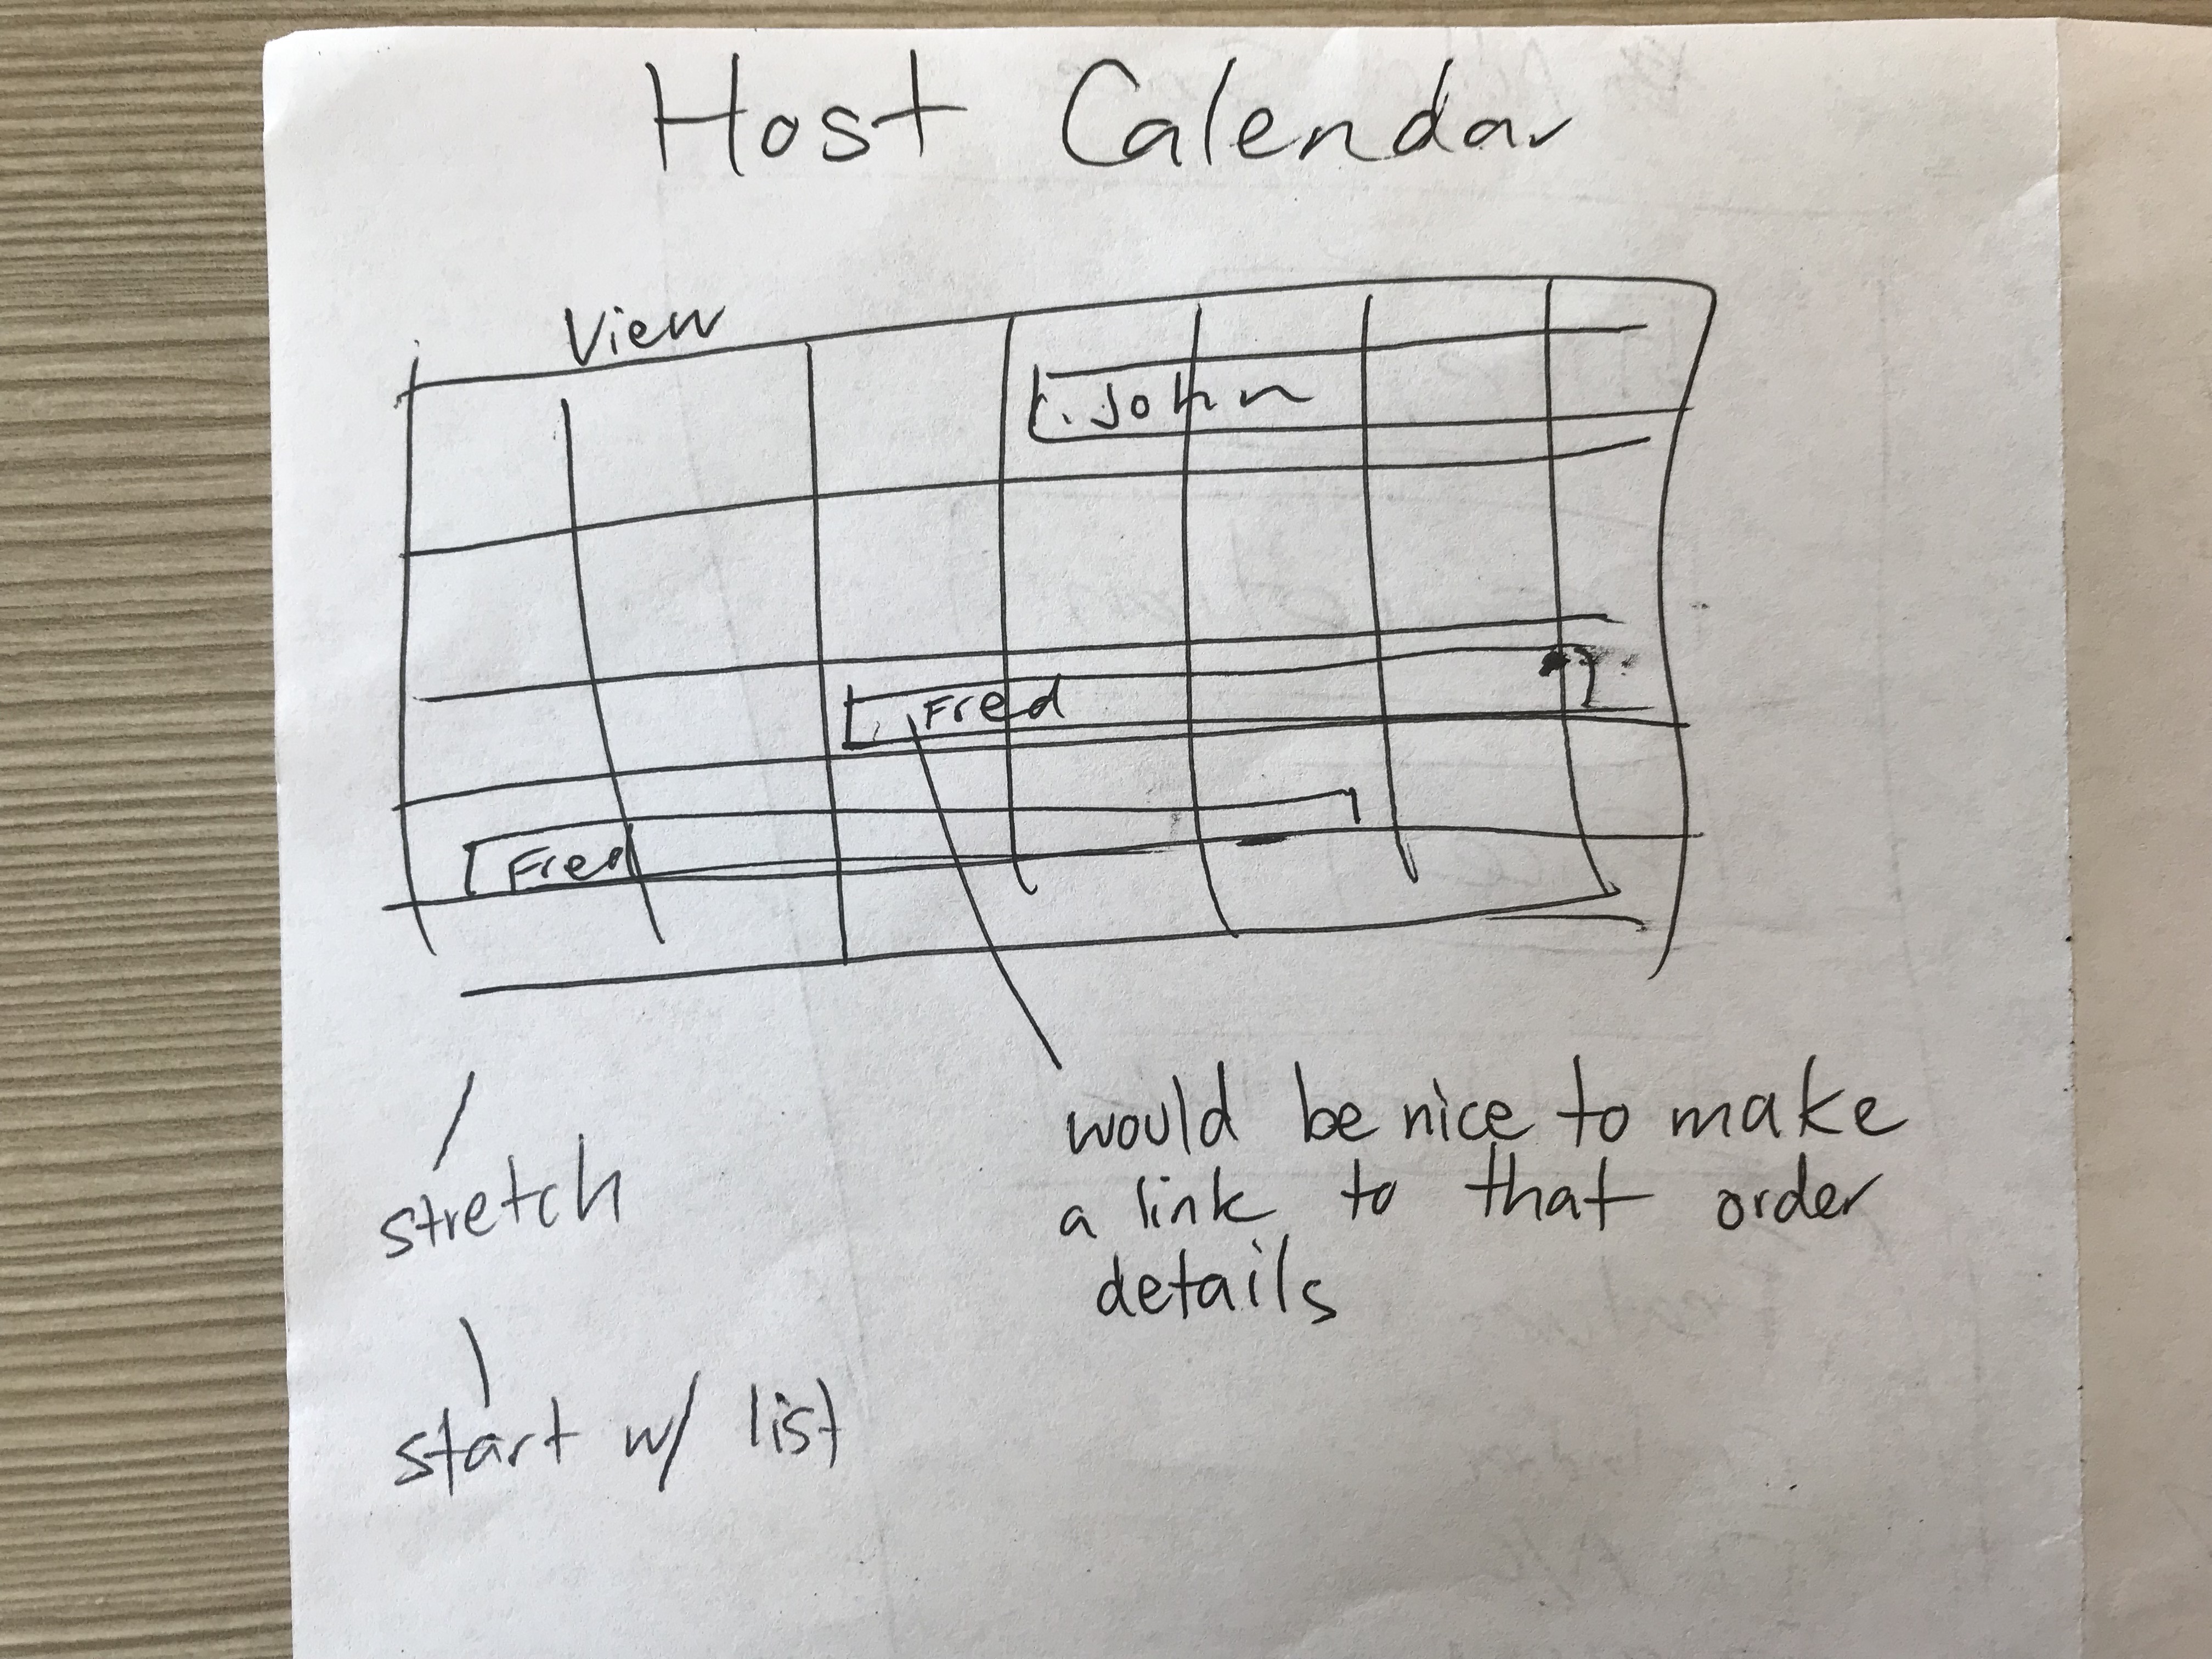 Host Calendar
View
John
Fred
Fred
would be nice to make
a link to that order
details
stretch
start w/ list